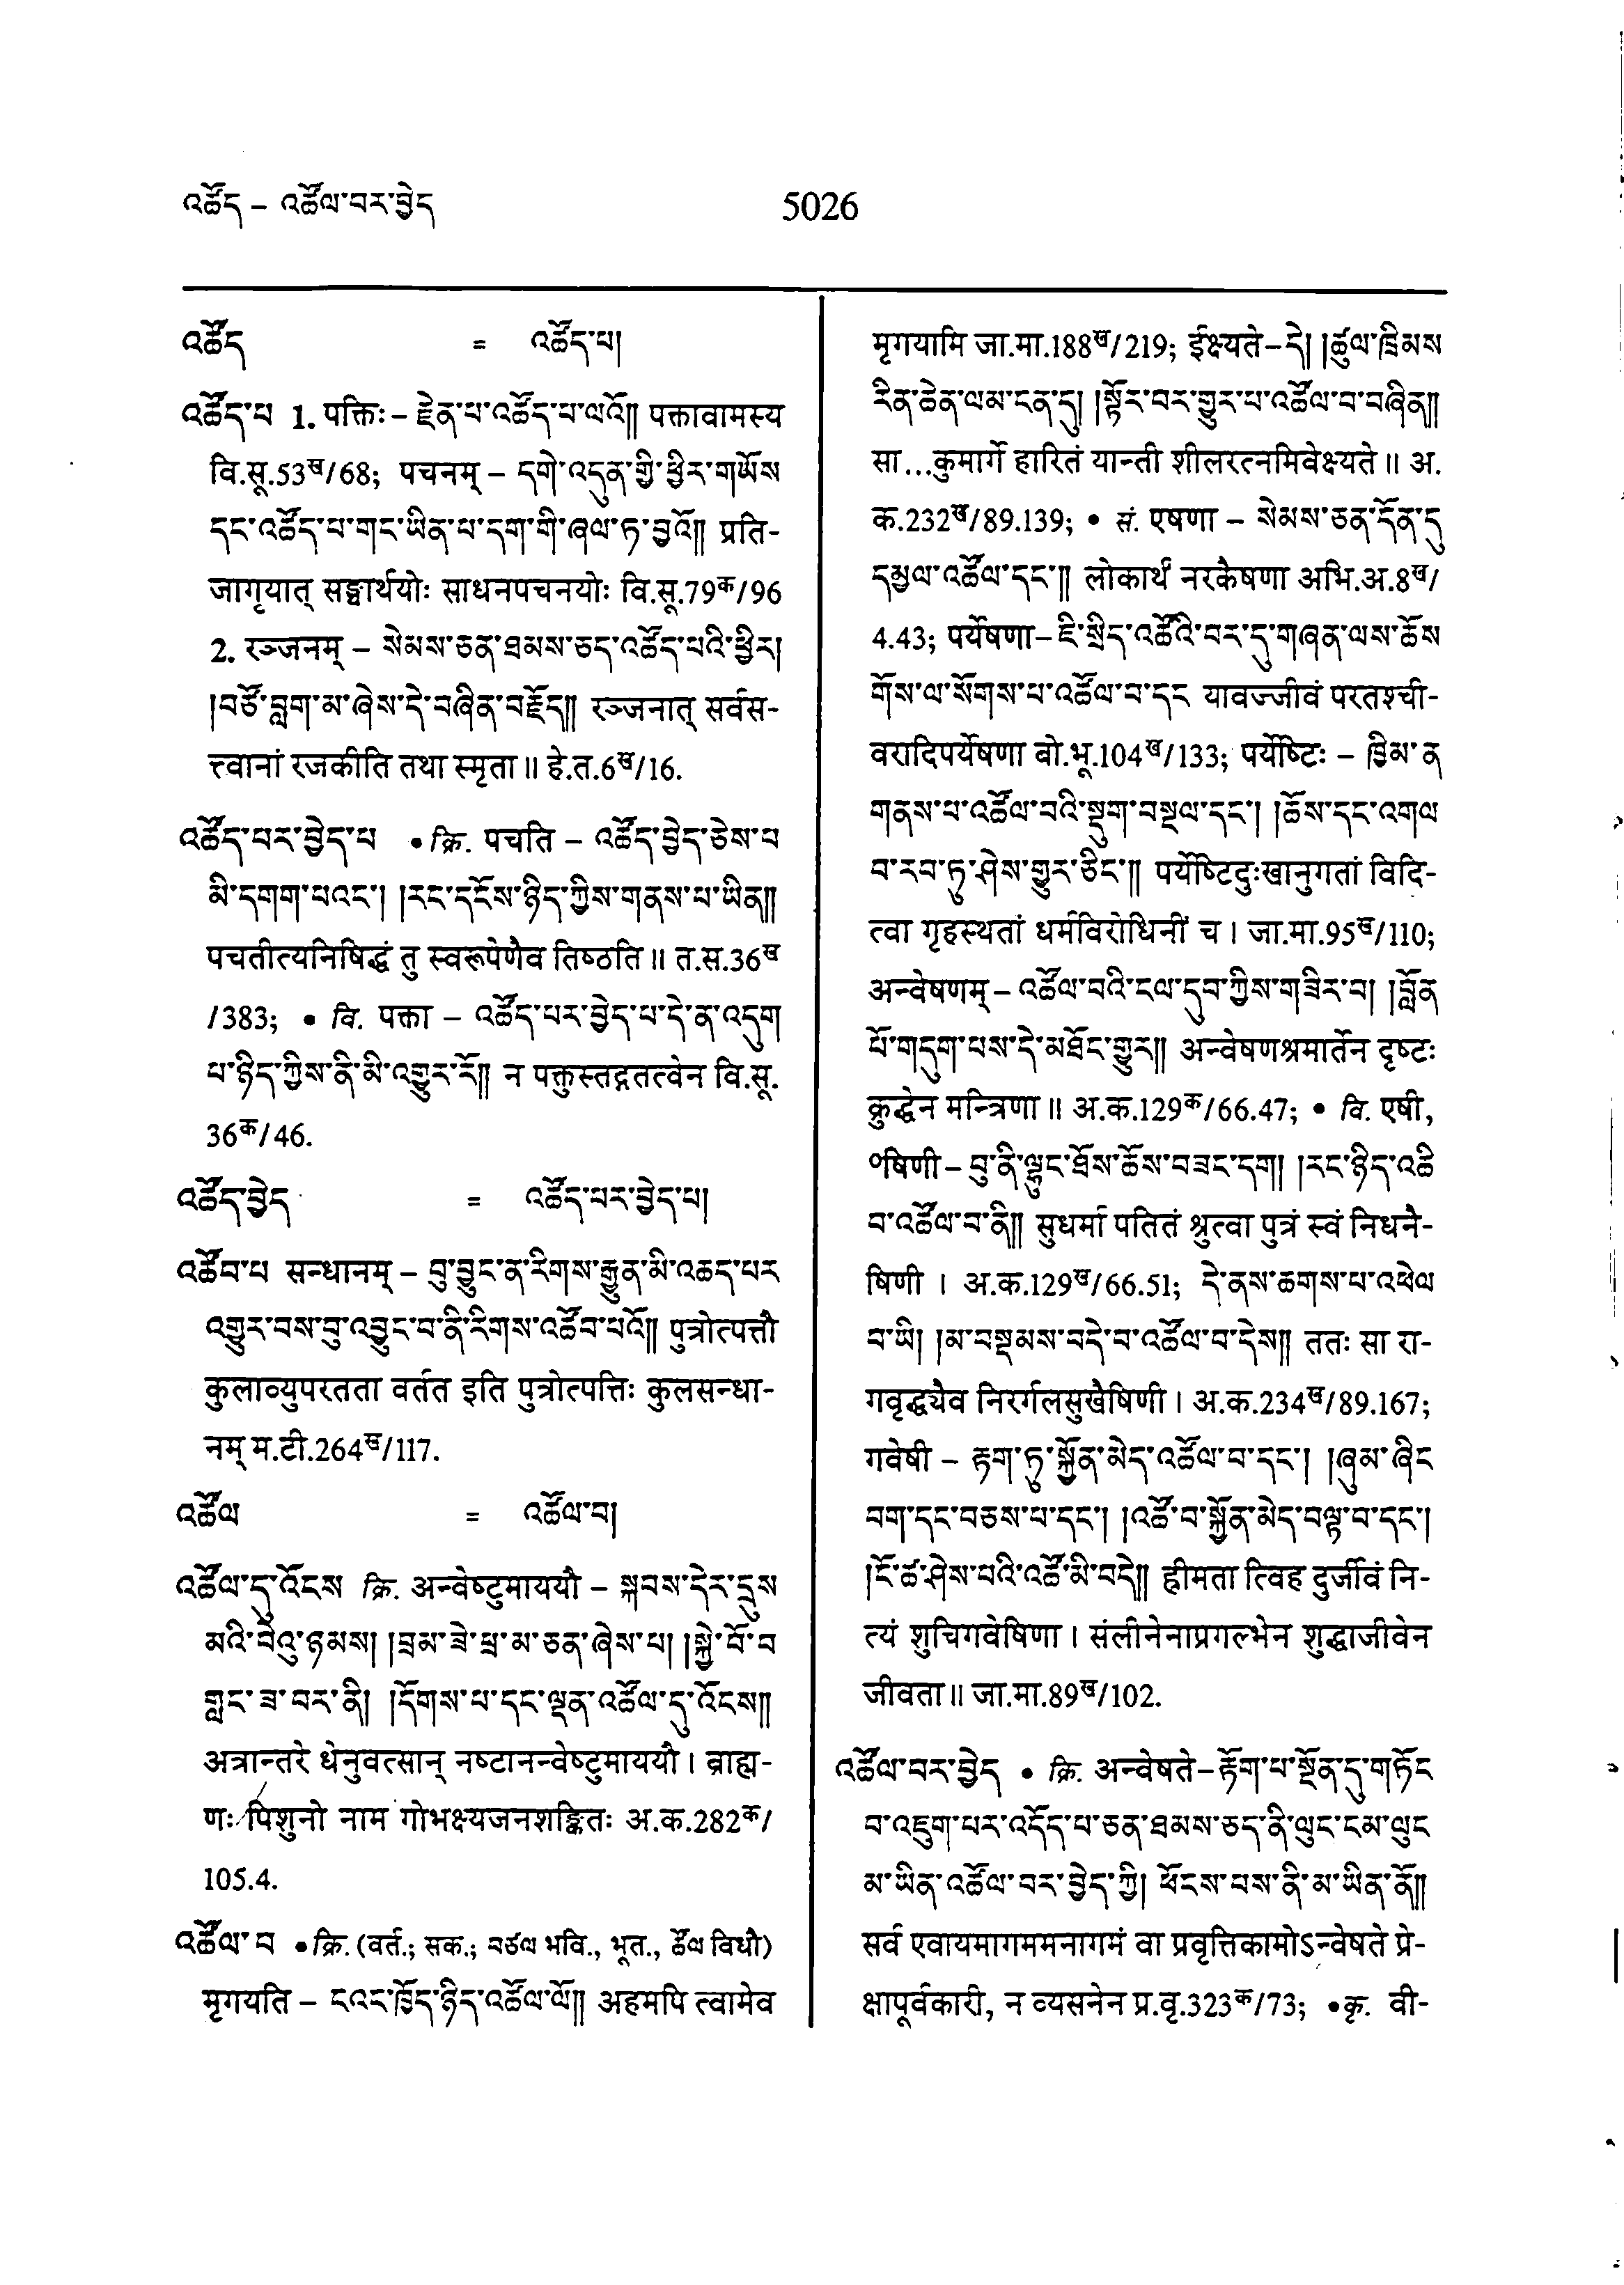 འཚོད – འཚོལ་བར་བྱེད
5026
འཚོད = འཚོད་པ།
འཚོད་པ 1. पक्तिः – རྗེན་པ་འཚོད་པ་ལའོ༎ पक्तावामस्य
वि.सू.53ख/68; पचनम् – དགེ་འདུན་གྱི་ཕྱིར་གཡོས
དང་འཚོད་པ་གང་ཡིན་པ་དག་གི་ཞལ་ཏ་བྱའོ༎ प्रति-
जागृयात् सङ्घार्थयोः साधनपचनयोः वि.सू.79क/96
2. रञ्जनम् – སེམས་ཅན་ཐམས་ཅད་འཚོད་པའི་ཕྱིར།
།བཙོ་བླག་མ་ཞེས་དེ་བཞིན་བརྗོད༎ रञ्जनात् सर्वस-
त्त्वानां रजकीति तथा स्मृता ॥ हे.त.6ख/16.
འཚོད་པར་བྱེད་པ • क्रि. पचति – འཚོད་བྱེད་ཅེས་པ
མི་དགག་པའང་། །རང་དངོས་ཉིད་ཀྱིས་གནས་པ་ཡིན༎
पचतीत्यनिषिद्धं तु स्वरूपेणैव तिष्ठति ॥ त.स.36ख
/383; • वि. पक्ता – འཚོད་པར་བྱེད་པ་དེ་ན་འདུག
པ་ཉིད་ཀྱིས་ནི་མི་འགྱུར་རོ༎ न पक्तुस्तद्गतत्वेन वि.सू.
36क/46.
འཚོད་བྱེད = འཚོད་པར་བྱེད་པ།
འཚོབ་པ सन्धानम् – བུ་བྱུང་ན་རིགས་རྒྱུན་མི་འཆད་པར
འགྱུར་བས་བུ་འབྱུང་བ་ནི་རིགས་འཚོབ་པའོ༎ पुत्रोत्पत्तौ
कुलाव्युपरतता वर्तत इति पुत्रोत्पत्तिः कुलसन्धा-
नम् म.टी.264ख/117.
འཚོལ = འཚོལ་བ།
འཚོལ་དུ་འོངས क्रि. अन्वेष्टुमाययौ – སྐབས་དེར་དྲུས
མའི་བེའུ་ཉམས། །བྲམ་ཟེ་ཕྲ་མ་ཅན་ཞེས་པ། །སྐྱེ་བོ་བ
གླང་ཟ་བར་ནི། །དོགས་པ་དང་ལྡན་འཚོལ་དུ་འོངས༎
अत्रान्तरे धेनुवत्सान् नष्टानन्वेष्टुमाययौ । ब्राह्म-
णः पिशुनो नाम गोभक्ष्यजनशङ्कितः अ.क.282क/
105.4.
འཚོལ་བ • क्रि. (वर्त.; सक.; བཙལ भवि., भूत., ཚོལ विधौ)
मृगयति – ངའང་ཁྱོད་ཉིད་འཚོལ་ལོ༎ अहमपि त्वामेव
मृगयामि जा.मा.188ख/219; ईक्ष्यते – དེ། །ཚུལ་ཁྲིམས
རིན་ཆེན་ལམ་ངན་དུ། །སྟོར་བར་གྱུར་པ་འཚོལ་བ་བཞིན༎
सा...कुमार्गे हारितं यान्ती शीलरत्नमिवेक्ष्यते ॥ अ.
क.232ख/89.139; • सं. एषणा – སེམས་ཅན་དོན་དུ
དམྱལ་འཚོལ་དང་༎ लोकार्थं नरकैषणा अभि.अ.8ख/
4.43; पर्येषणा – ཇི་སྲིད་འཚོའི་བར་དུ་གཞན་ལས་ཆོས
གོས་ལ་སོགས་པ་འཚོལ་བ་དང यावज्जीवं परतश्ची-
वरादिपर्येषणा बो.भू.104ख/133; पर्येष्टिः – ཁྱིམ་ན
གནས་པ་འཚོལ་བའི་སྡུག་བསྔལ་དང་། །ཆོས་དང་འགལ
བ་རབ་ཏུ་ཤེས་གྱུར་ཅིང་༎ पर्येष्टिदुःखानुगतां विदि-
त्वा गृहस्थतां धर्मविरोधिनीं च । जा.मा.95ख/110;
अन्वेषणम् – འཚོལ་བའི་ངལ་དུབ་ཀྱིས་གཟིར་བ། །བློན
པོ་གདུག་པས་དེ་མཐོང་གྱུར༎ अन्वेषणश्रमार्तेन दृष्टः
क्रुद्धेन मन्त्रिणा ॥ अ.क.129क/66.47; • वि. एषी,
०षिणी – བུ་ནི་ལྷུང་ཐོས་ཆོས་བཟང་དག། །རང་ཉིད་འཆི
བ་འཚོལ་བ་ནི༎ सुधर्मा पतितं श्रुत्वा पुत्रं स्वं निधनै-
षिणी । अ.क.129ख/66.51; དེ་ནས་ཆགས་པ་འཕེལ
བ་ཡི། །མ་བསྡམས་བདེ་བ་འཚོལ་བ་དེས༎ ततः सा रा-
गवृद्ध्यैव निरर्गलसुखैषिणी । अ.क.234ख/89.167;
गवेषी – རྟག་ཏུ་སྐྱོན་མེད་འཚོལ་བ་དང་། །ཞུམ་ཞིང
བག་དང་བཅས་པ་དང་། །འཚོ་བ་སྐྱོན་མེད་བལྟ་བ་དང་།
།ངོ་ཚ་ཤེས་པའི་འཚོ་མི་བདེ༎ ह्रीमता त्विह दुर्जीवं नि-
त्यं शुचिगवेषिणा । संलीनेनाप्रगल्भेन शुद्धाजीवेन
जीवता ॥ जा.मा.89ख/102.
འཚོལ་བར་བྱེད • क्रि. अन्वेषते – རྟོག་པ་སྔོན་དུ་གཏོང
བ་འཇུག་པར་འདོད་པ་ཅན་ཐམས་ཅད་ནི་ལུང་ངམ་ལུང
མ་ཡིན་འཚོལ་བར་བྱེད་ཀྱི། ཕོངས་པས་ནི་མ་ཡིན་ནོ༎
सर्व एवायमागममनागमं वा प्रवृत्तिकामोऽन्वेषते प्रे-
क्षापूर्वकारी, न व्यसनेन प्र.वृ.323क/73; • कृ. वी-